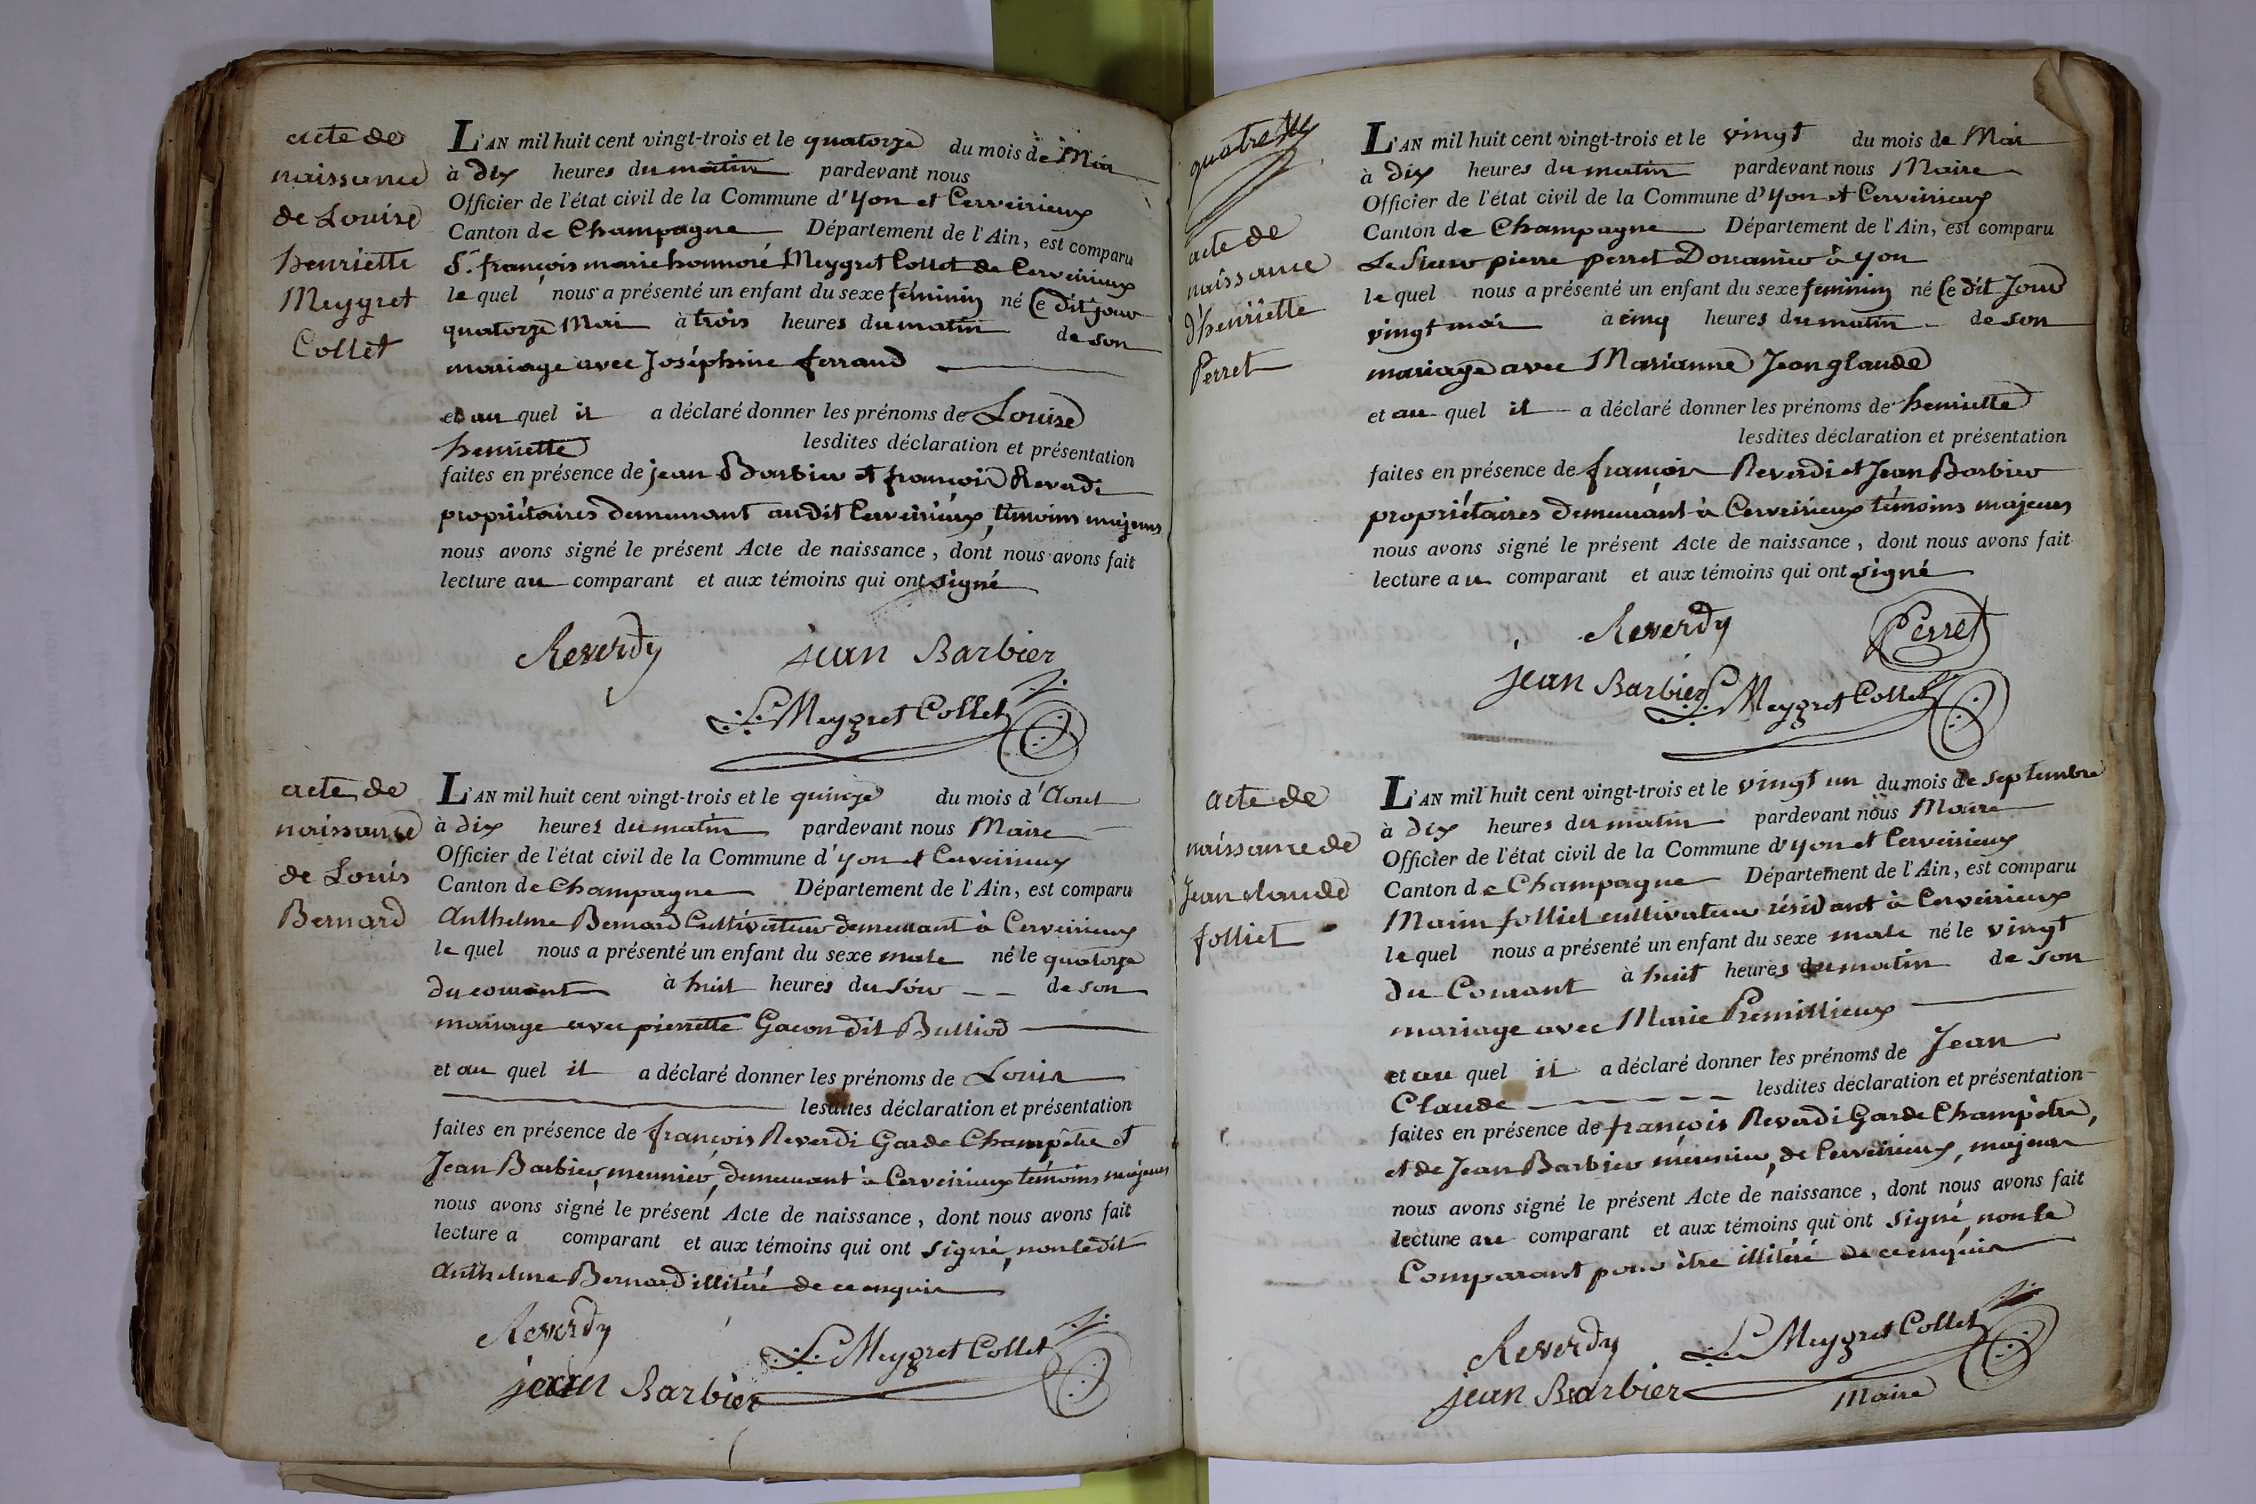 acte de
naissance
de Louise
henriette
Meygret
Collet
L'AN mil huit cent vingt-trois et le quatorze du mois de Mai
à dix heures du matin pardevant nous
Officier de l'état civil de la Commune d'yon et Cerveirieux
Canton de Champagne Département de l'Ain, est comparu
Sr. françois marie honnoré Meygret Collet de Cerveirieux
le quel nous a présenté un enfant du sexe féminin né Ce dit jour
quatorze Mai à trois heures du matin de son
mariage avec Joséphine ferrand
et au quel il a déclaré donner les prénoms de Louise
henriette lesdites déclaration et présentation
faites en présence de jean Barbier et françois Reverdi
propriétaires demeurant audit Cerveirieux, témoins majeurs
nous avons signé le présent Acte de naissance, dont nous avons fait
lecture au comparant et aux témoins qui ont signé
Reverdy jean Barbier
L. Meygret Collet
acte de
naissance
de Louis
Bernard
L'AN mil huit cent vingt-trois et le quinze du mois d'Aout
à dix heures du matin pardevant nous Maire
Officier de l'état civil de la Commune d'yon et Cerveirieux
Canton de Champagne Département de l'Ain, est comparu
Anthelme Bernard Cultivateur demeurant à Cerveirieux
le quel nous a présenté un enfant du sexe male né le quatorze
du courant à huit heures du soir de son
mariage avec pierrette Gacon dit Bulliod
et au quel il a déclaré donner les prénoms de Louis
lesdites déclaration et présentation
faites en présence de françois Reverdi Garde Champêtre et
Jean Barbier, meunier, demeurant à Cerveirieux témoins majeurs
nous avons signé le présent Acte de naissance, dont nous avons fait
lecture a comparant et aux témoins qui ont signé, non ledit
Anthelme Bernard illitéré de ce enquis
Reverdy
L. Meygret Collet
jean Barbier
quatre
acte de
naissance
d'henriette
Perret
L'AN mil huit cent vingt-trois et le vingt du mois de Mai
à dix heures du matin pardevant nous Maire
Officier de l'état civil de la Commune d'yon et Cerveirieux
Canton de Champagne Département de l'Ain, est comparu
Le Sieur pierre perret Douanier à yon
le quel nous a présenté un enfant du sexe feminin né Ce dit Jour
vingt mai à cinq heures du matin de son
mariage avec Marianne Jean glaude
et au quel il a déclaré donner les prénoms de henriette
lesdites déclaration et présentation
faites en présence de françois Reverdi et Jean Barbier
propriétaires demeurant à Cerveirieux témoins majeurs
nous avons signé le présent Acte de naissance, dont nous avons fait
lecture au comparant et aux témoins qui ont signé
Reverdy Perret
jean Barbier L. Meygret Collet
acte de
naissance de
Jean claude
folliet
L'AN mil huit cent vingt-trois et le vingt un du mois de septembre
à dix heures du matin pardevant nous Maire
Officier de l'état civil de la Commune d'yon et Cerveirieux
Canton de Champagne Département de l'Ain, est comparu
Marin folliet cultivateur résidant à Cerveirieux
le quel nous a présenté un enfant du sexe male né le vingt
du Courant à huit heures du matin de son
mariage avec Marie Premillieux
et au quel il a déclaré donner les prénoms de Jean
Claude lesdites déclaration et présentation
faites en présence de françois Reverdi Garde Champêtre,
et de Jean Barbier meunier, de Cerveirieux, majeurs
nous avons signé le présent Acte de naissance, dont nous avons fait
lecture au comparant et aux témoins qui ont signé, non le
Comparant pour être illitéré de ce enquis
Reverdy L. Meygret Collet
jean Barbier Maire